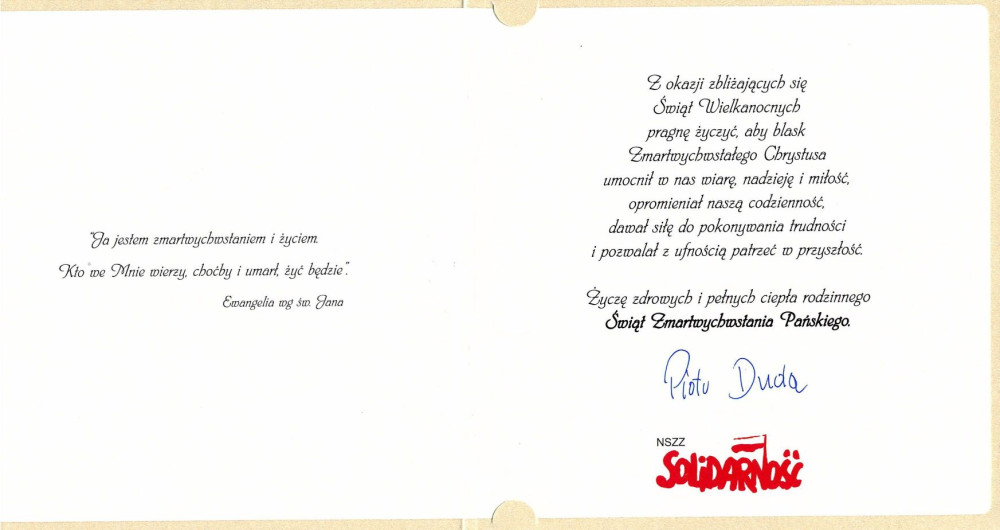 "Ja jestem zmartwychwstaniem i życiem.
Kto we Mnie wierzy, choćby i umarł, żyć będzie".
Ewangelia wg św. Jana
Z okazji zbliżających się
Świąt Wielkanocnych
pragnę życzyć, aby blask
Zmartwychwstałego Chrystusa
umocnił w nas wiarę, nadzieję i miłość,
opromieniał naszą codzienność,
dawał siłę do pokonywania trudności
i pozwalał z ufnością patrzeć w przyszłość.
Życzę zdrowych i pełnych ciepła rodzinnego
Świąt Zmartwychwstania Pańskiego.
Piotr Duda
NSZZ
SOLIDARNOŚĆ